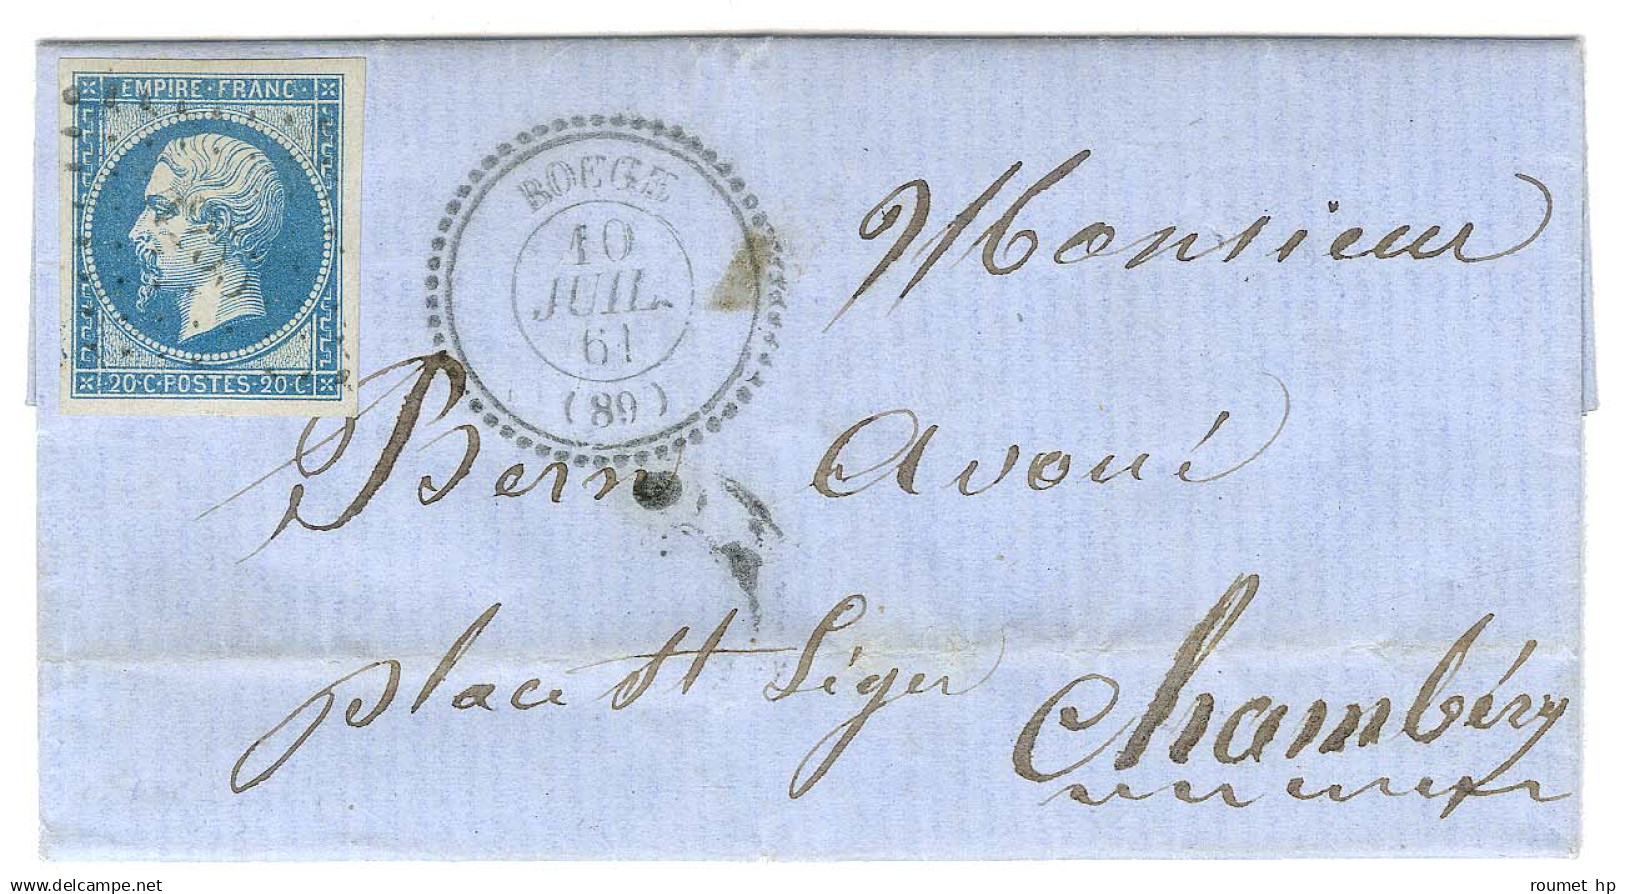 EMPIRE·FRANC·
20·C·POSTES·20·C
BOEGE
10
JUIL.
61
(89)
Monsieur
Bern Avoué
place St Léger
Chambéry
roumet hp